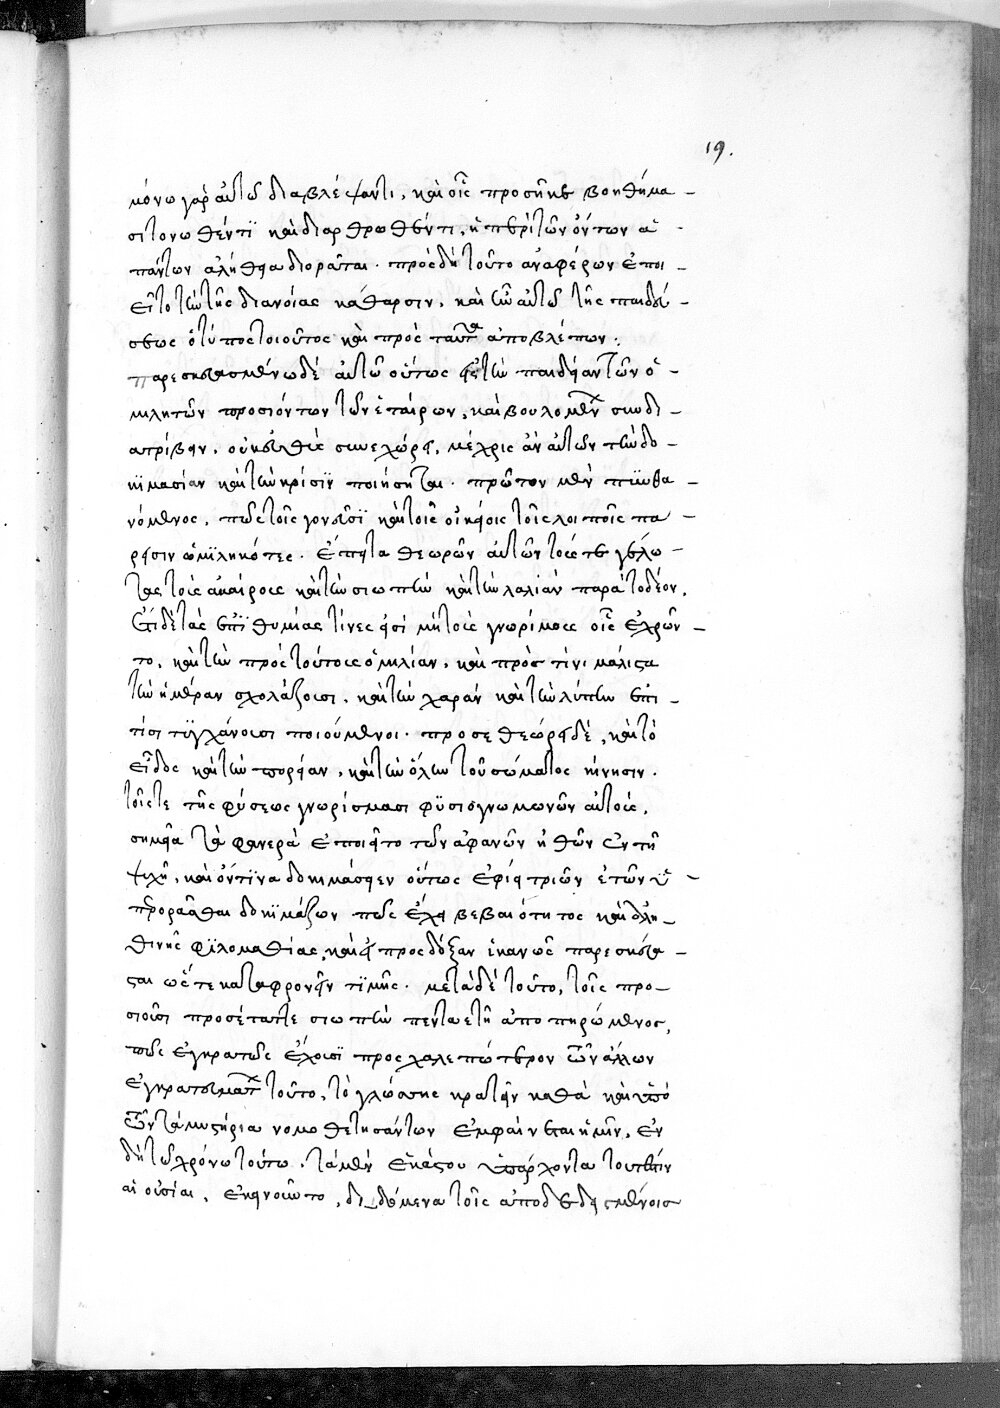 19.
μόνω γὰρ αὐτῶ διαβλέψαντι, καὶ οἷς προσῆκε βοηθήμα-
σι τονωθέντϊ καὶ διαρθρωθέντι, ἡ περὶ τῶν ὄντων ἁ-
πάντων ἀλήθεια διορᾶται. πρὸς δὴ τοῦτο ἀναφέρων ἐποι-
εῖτο τὴν τῆς διανοίας κάθαρσιν, καὶ ἦν αὐτῶ τῆς παιδεύ-
σεως ὁ τύπος τοιοῦτος καὶ πρὸς ταῦτα ἀποβλέπων.
παρεσκευασμένω δὲ αὐτῶ οὕτως εἰς τὴν παιδείαν τῶν ὁ-
μιλητῶν προσιόντων τῶν ἑταίρων, καὶ βουλομένων συνδι-
ατρίβειν, οὐκ εὐθὺς συνεχώρει, μέχρις ἂν αὐτῶν τὴν δο-
κϊμασίαν καὶ τὴν κρίσϊν ποιήσηται. πρῶτον μὲν πϋνθα-
νόμενος, πῶς τοῖς γονεῦσϊ καὶ τοῖς οἰκείοις τοῖς λοιποῖς πά-
ρεισιν ὡμϊληκότες. ἔπειτα θεωρῶν αὐτῶν τούς τε γέλω-
τας τοὺς ἀκαίρους καὶ τὴν σιωπὴν καὶ τὴν λαλιὰν παρὰ τὸ δέον.
ἔτι δὲ τὰς ἐπϊθυμίας τίνες εἰσὶ καὶ τοὺς γνωρίμους οἷς ἐχρῶν-
το, καὶ τὴν πρὸς τούτους ὁμιλίαν, καὶ πρὸς τίνι μάλιστα
τὴν ἡμέραν σχολάζουσι, καὶ τὴν χαρὰν καὶ τὴν λύπην ἐπὶ
τίσι τϋγχάνουσι ποιούμενοι. προσεθεώρει δὲ, καὶ τὸ
εἶδος καὶ τὴν πορείαν, καὶ τὴν ὅλην τοῦ σώματος κίνησιν.
τοῖς τε τῆς φύσεως γνωρίσμασι φϋσιογνωμονῶν αὐτοὺς,
σημεῖα τὰ φανερὰ ἐποιεῖτο τῶν ἀφανῶν ἠθῶν ἐν τῆ
ψυχῆ, καὶ ὅντϊνα δοκιμάσειεν οὕτως ἐφίει τριῶν ἐτῶν ὑ-
περορᾶσθαι δοκϊμάζων πῶς ἔχει βεβαιότητος καὶ ἀλη-
θινῆς φϊλομαθίας, καὶ εἰ πρὸς δόξαν ἱκανῶς παρεσκεύα-
σται ὥστε καταφρονεῖν τϊμῆς. μετὰ δὲ τοῦτο, τοῖς προ-
σιοῦσι προσέταττε σιωπὴν πενταετῆ ἀποπειρώμενος,
πῶς ἐγκρατῶς ἔχουσϊ πρὸς χαλεπώτερον τῶν ἄλλων
ἐγκρατευμάτων τοῦτο, τὸ γλώσσης κρατεῖν καθὰ καὶ ὑπὸ
τῶν τὰ μυστήρια νομοθετησάντων ἐμφαίνεται ἡμῖν, ἐν
δὴ τῶ χρόνω τούτω, τὰ μὲν ἑκάστου ὑπάρχοντα τουτέστιν
αἱ οὐσίαι, ἐκοινοῦντο, διδόμενα τοῖς ἀποδεδειγμένοις